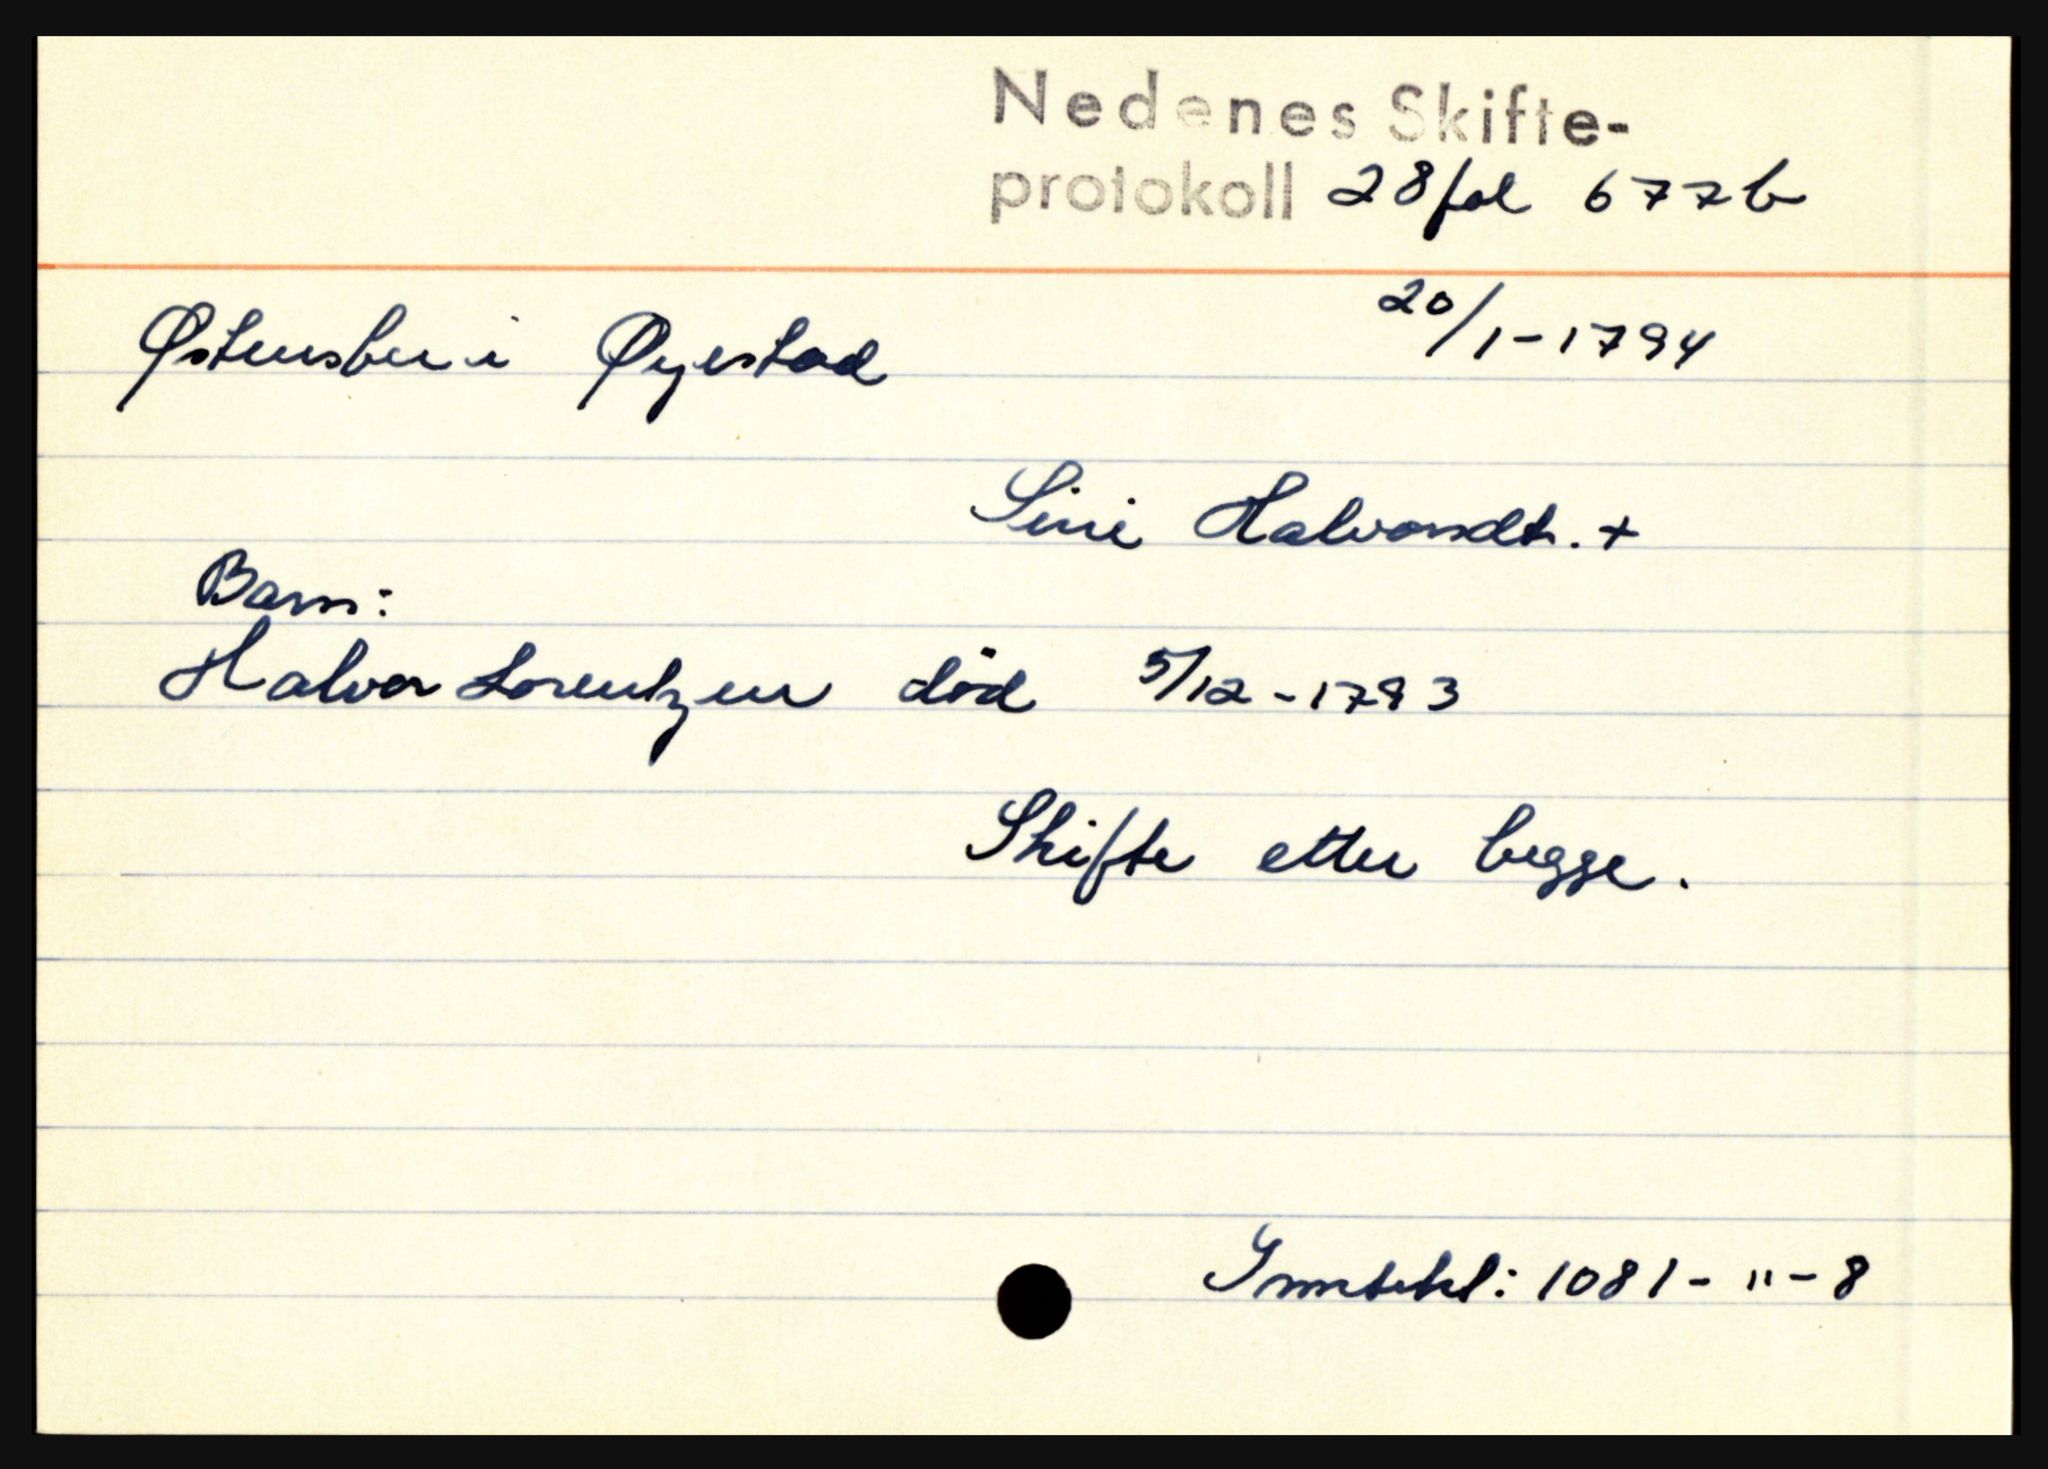 Nedenes Skifte-
protokoll 28 fol 677b
20/1-1794
Østensbu i Øyestad
Siri Halvorsdt. +
Barn:
Halvor Lorentzen død 5/12-1793
Skifte etter begge.
Inntekt: 1081-"-8